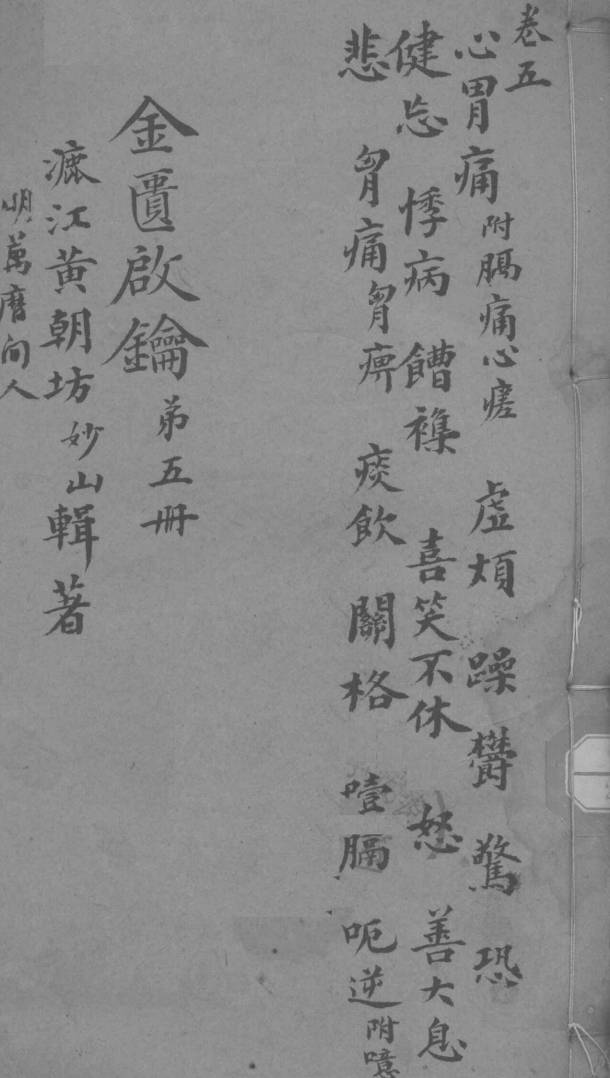 卷五
心胃痛附膈痛心痞 虛煩 躁 鬱 驚 恐
健忘 悸病 饋襍 喜笑不休 怒 善大息
悲 胷痛胷痹 痰飲 關格 噎膈 呃逆附噫
金匱啟鑰 弟五冊
漉江黃朝坊妙山輯著
明萬曆间人